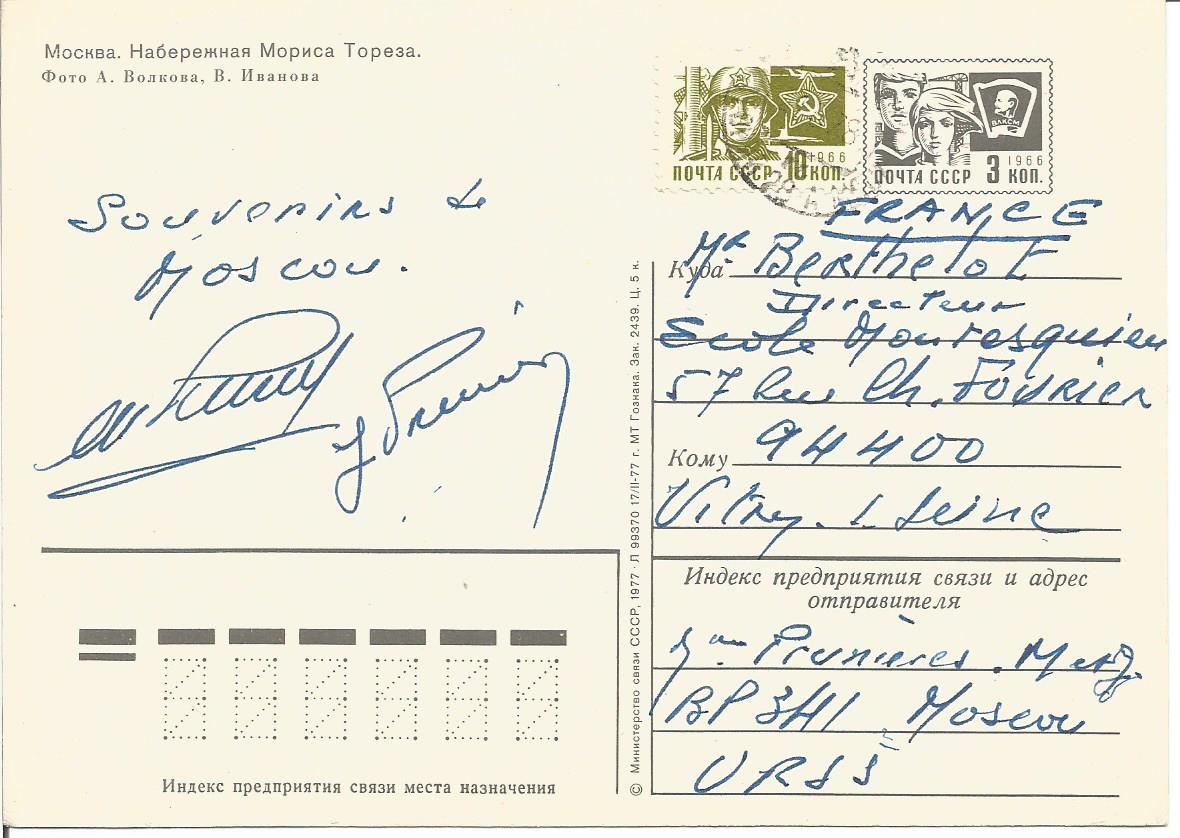 Москва. Набережная Мориса Тореза.
Фото А. Волкова, В. Иванова
1966
ПОЧТА СССР 10 КОП.
ВЛКСМ
1966
ПОЧТА СССР 3 КОП.
Souvenirs de
Moscou.
FRANCE
Куда Mr Berthelot
Directeur
Ecole Montesquieu
57 Rue Ch. Fourier
94400
Кому
Vitry. s. Seine
Индекс предприятия связи и адрес
отправителя
Prunières.
BP 341 Moscou
URSS
© Министерство связи СССР, 1977 · Л 99370 17/II-77 г. МТ Гознака. Зак. 2439. Ц. 5 к.
Индекс предприятия связи места назначения